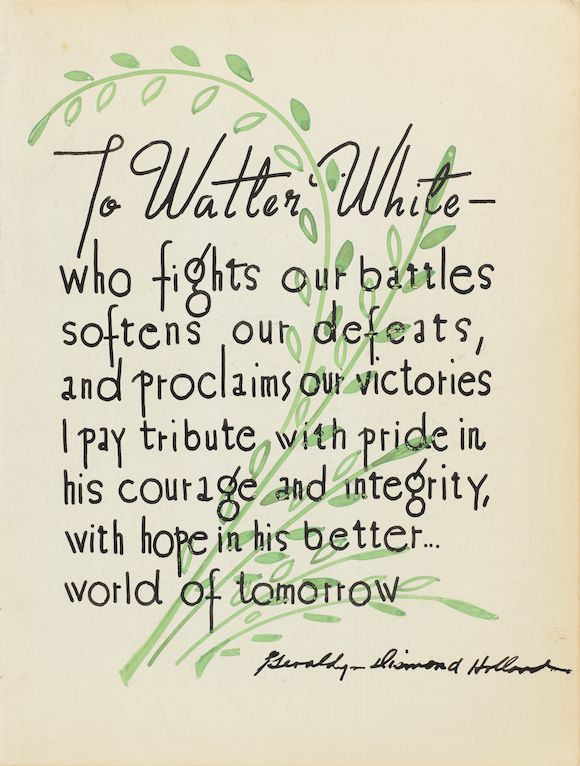 To Walter White—
who fights our battles
softens our defeats,
and proclaims our victories
I pay tribute with pride in
his courage and integrity,
with hope in his better...
world of tomorrow
Geraldyn Dismond Holland